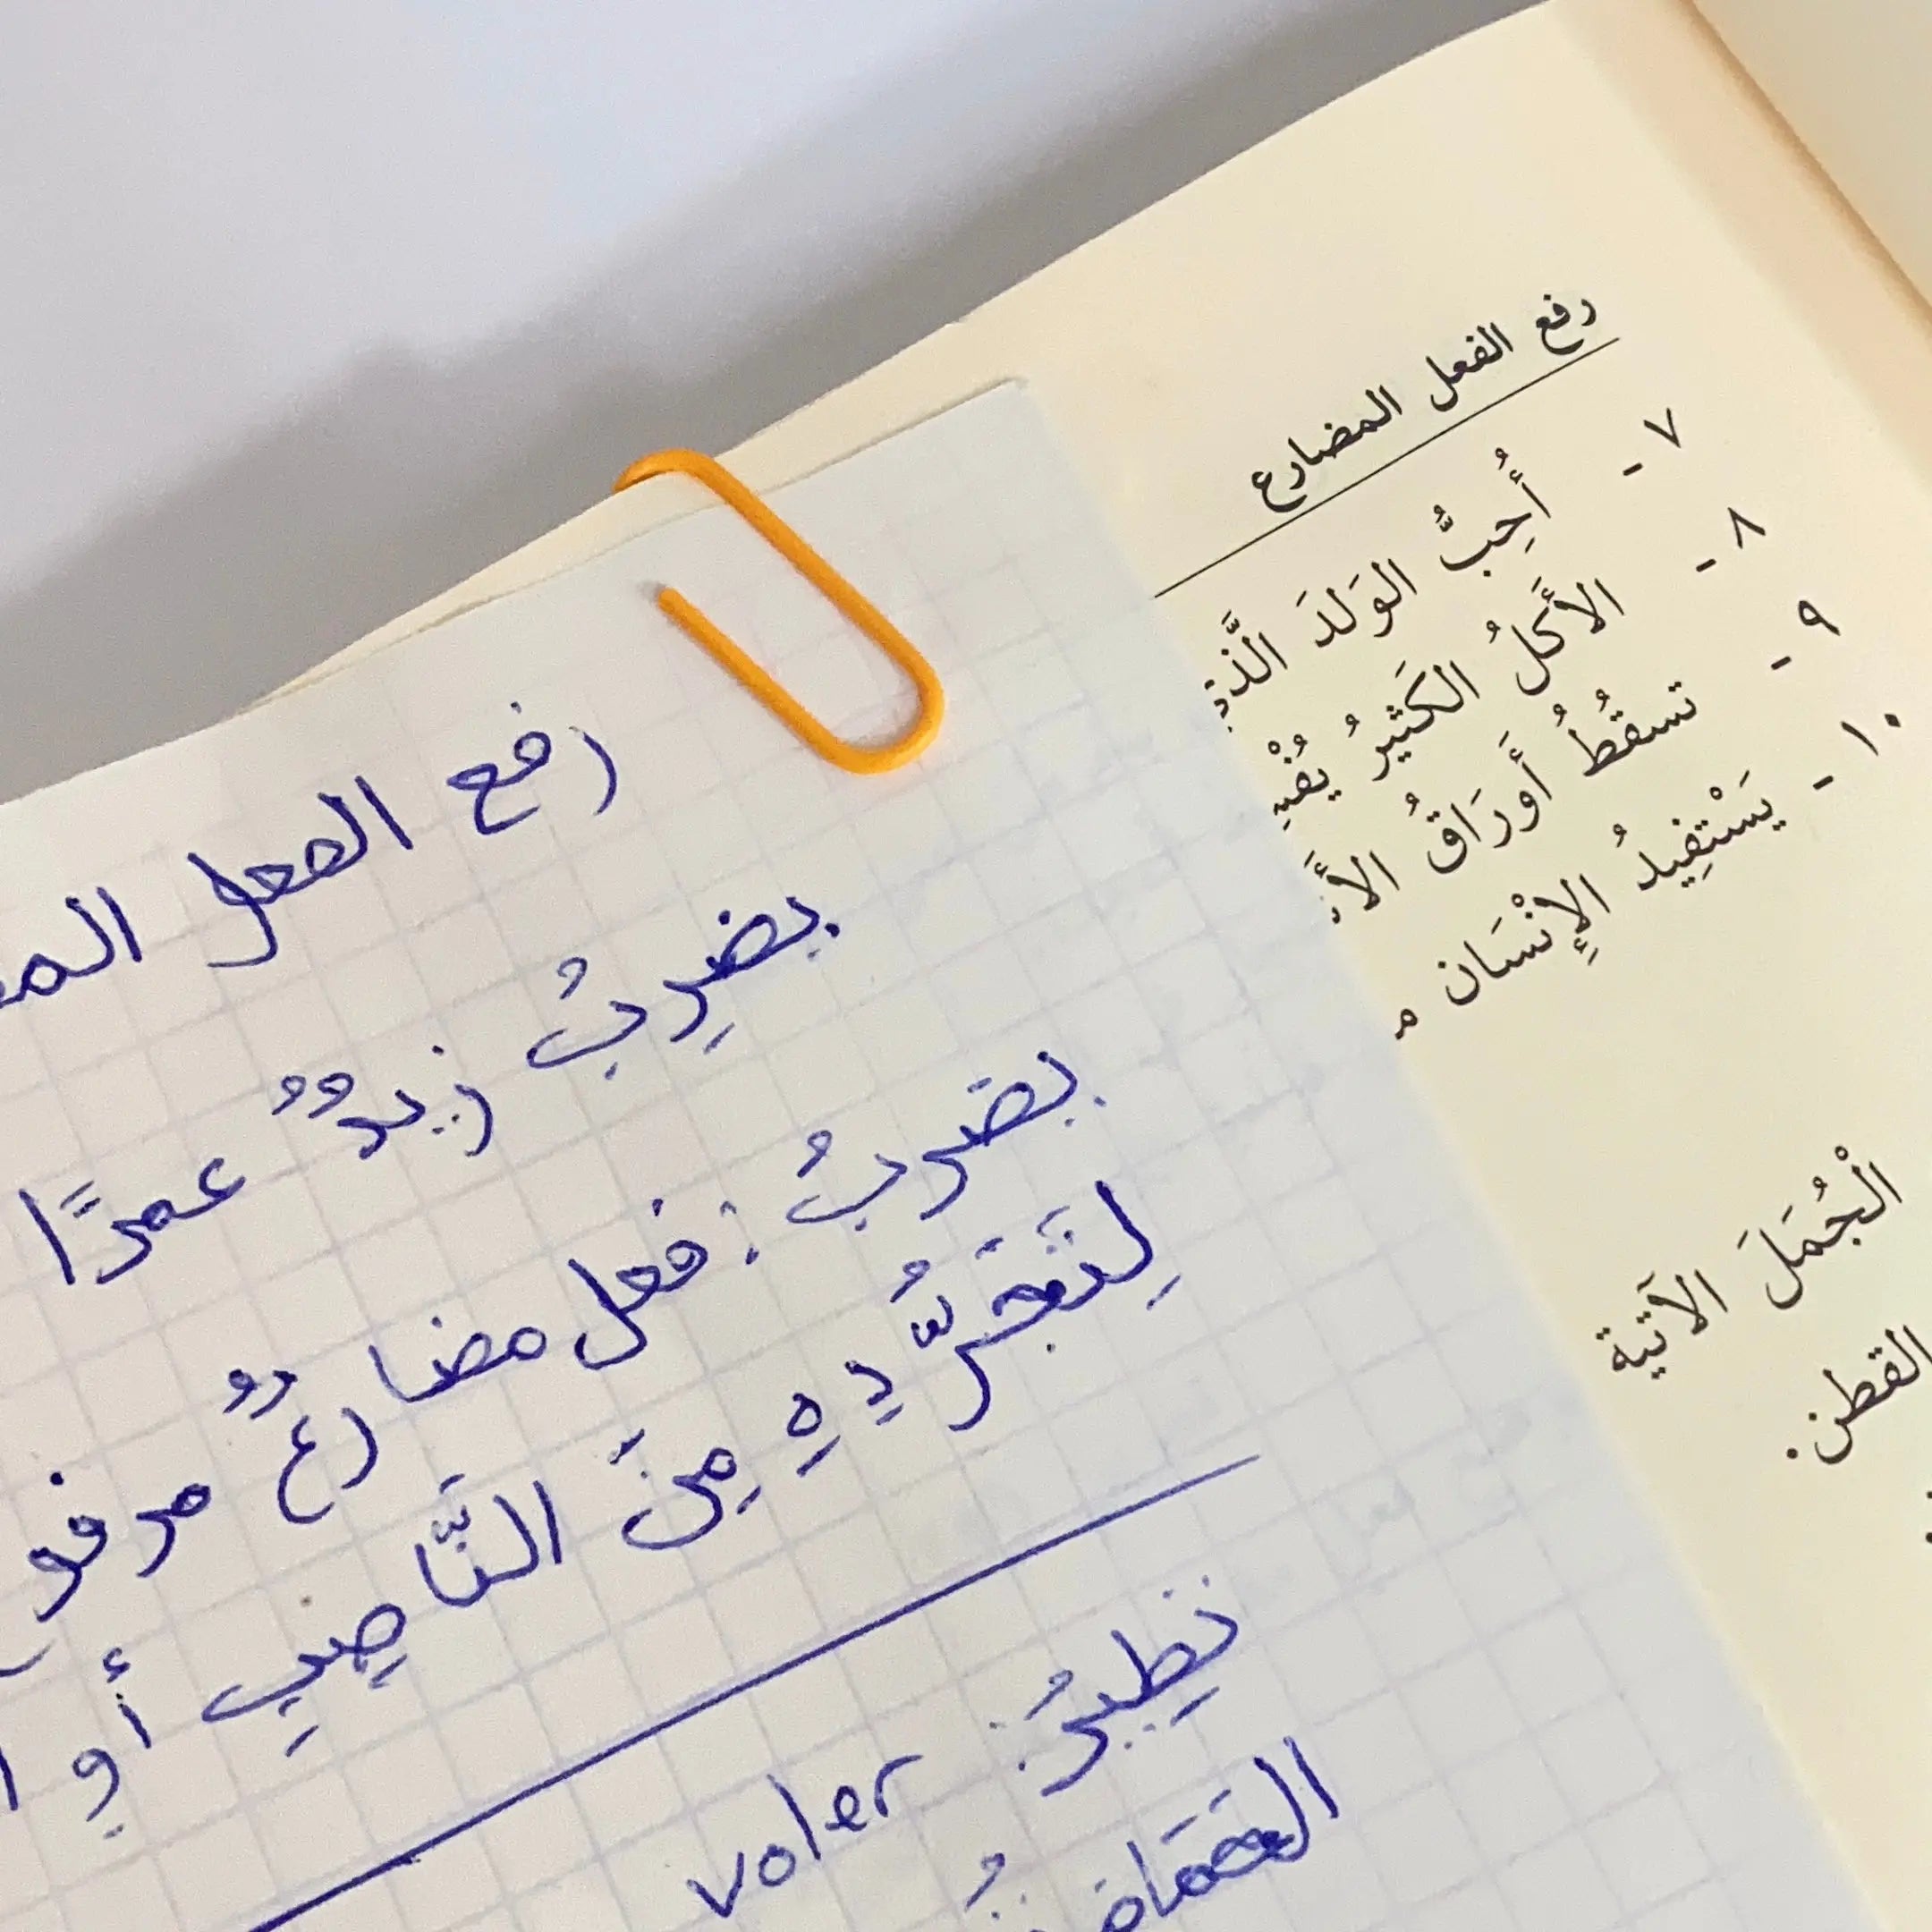 رفع الفعل المضارع
٧ - أُحِبُّ الوَلَدَ
٨ - الأَكلُ الكَثيرُ
٩ - تسقُطُ أَورَاقُ
١٠ - يَسْتفِيدُ الإِنْسَان
الْجُمَلَ الآتية
القطن.
رفع الفعل
يضرِبُ زيدٌ عمرًا
يضربُ : فعل مضارعٌ
لِتَجَرُّدِهِ مِنَ النَّاصِبِ أو
تطِيرُ : voler